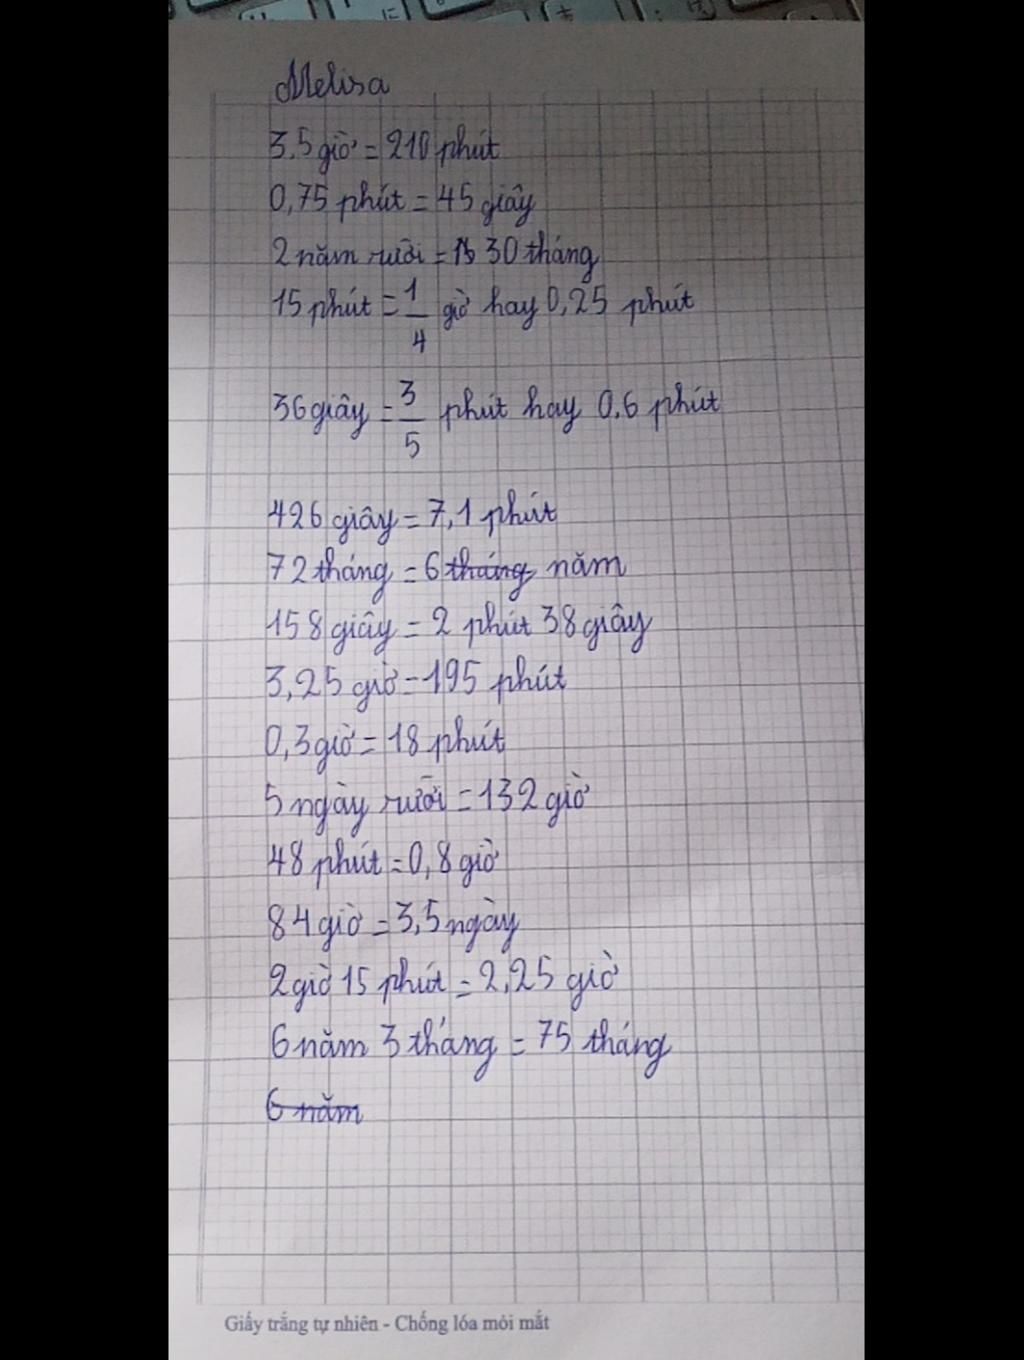 Melisa
3,5 giờ = 210 phút
0,75 phút = 45 giây
2 năm rưỡi = 30 tháng
15 phút = 1/4 giờ hay 0,25 phút
36 giây = 3/5 phút hay 0,6 phút
426 giây = 7,1 phút
72 tháng = 6 tháng năm
158 giây = 2 phút 38 giây
3,25 giờ = 195 phút
0,3 giờ = 18 phút
5 ngày rưỡi = 132 giờ
48 phút = 0,8 giờ
84 giờ = 3,5 ngày
2 giờ 15 phút = 2,25 giờ
6 năm 3 tháng = 75 tháng
6 năm
Giấy trắng tự nhiên - Chống lóa mỏi mắt